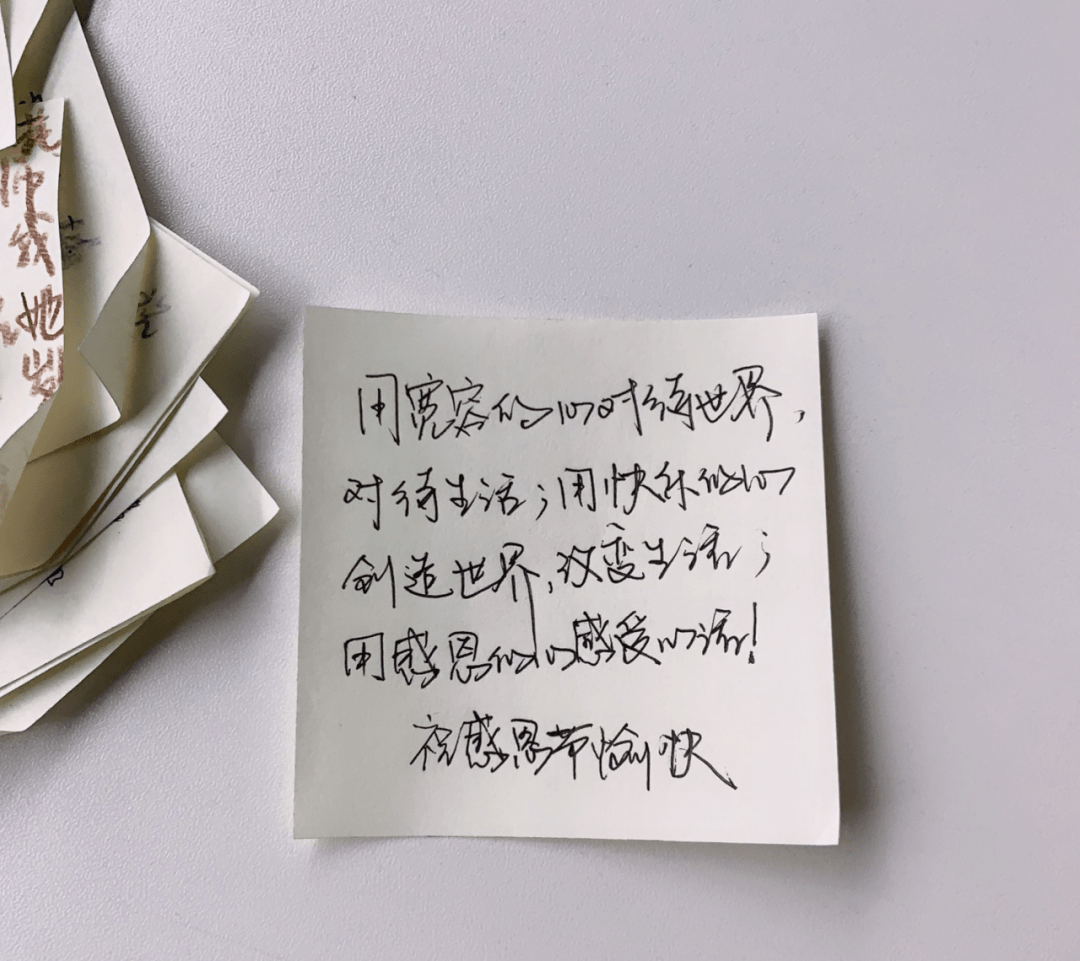 用宽容的心对待世界，
对待生活；用快乐的心
创造世界，改变生活；
用感恩的心感受生活！
祝感恩节愉快
她